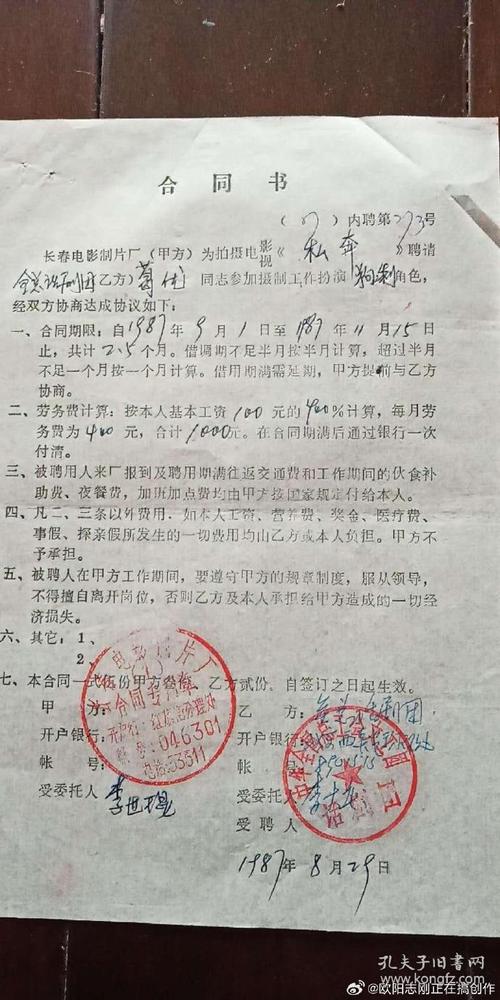 合同书
(87)内聘第273号
长春电影制片厂(甲方)为拍摄电影视《私奔》聘请
全总话剧团乙方)葛优同志参加摄制工作扮演 角色,
经双方协商达成协议如下:
一、合同期限:自1987年9月1日至1987年11月15日
止,共计2.5个月。借调期不足半月按半月计算,超过半月
不足一个月按一个月计算。借用期满需延期,甲方提前与乙方
协商。
二、劳务费计算:按本人基本工资100元的400%计算,每月劳
务费为400元,合计1000元。在合同期满后通过银行一次
付清。
三、被聘用人来厂报到及聘用期满往返交通费和工作期间的伙食补
助费、夜餐费,加班加点费均由甲方按国家规定付给本人。
四、凡二、三条以外费用,如本人工资、营养费、奖金、医疗费、
事假、探亲假所发生的一切费用均由乙方或本人负担。甲方不
予承担。
五、被聘人在甲方工作期间,要遵守甲方的规章制度,服从领导,
不得擅自离开岗位,否则乙方及本人承担给甲方造成的一切经
济损失。
六、其它:1、
2、
七、本合同一式 份甲方 份,乙方贰份。自签订之日起生效。
甲方: 乙方:全总话剧团
开户银行: 开户银行:
帐号: 帐号:
受委托人 受委托人
受聘人
1987年8月29日
电影制片厂
合同专用章
开户行:红旗街办理处
帐号:046301
电话:53311
中华全国总工会
话剧团
孔夫子旧书网
kongfz.com
@欧阳志刚正在搞创作